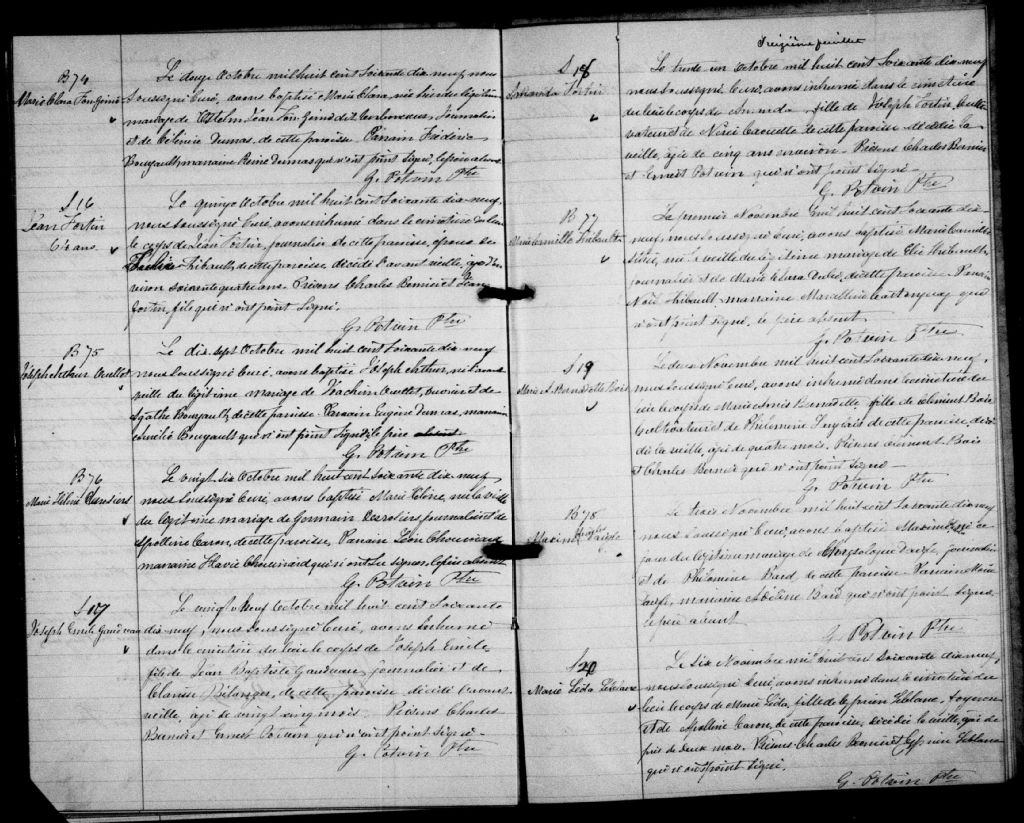 B 74
Marie Clara
Le douze Octobre mil huit cent soixante dix neuf, nous
soussigné Curé, avons baptisé Marie Clara, née hier du légitime
mariage de Jean journalier
et de Célénire Dumas, de cette paroisse. Parrain Frédéric
Bouzault, marraine Reine Dumas qui n'ont point signé, le père absent
G. Potvin Ptre
S 16
Jean Fortin
64 ans
Le quinze Octobre mil huit cent soixante dix-neuf,
nous soussigné Curé, avons inhumé dans le cimetière du lieu
le corps de Jean Fortin, journalier de cette paroisse, époux de
Thibault, de cette paroisse, décédé l'avant veille, âgé d'en-
viron soixante quatre ans. Présens Charles Bernier et Jean
Fortin, fils qui n'ont point signé.
G. Potvin Ptre
B 75
Joseph Arthur Ouellet
Le dix-sept Octobre mil huit cent soixante dix neuf
nous soussigné Curé, avons baptisé Joseph Arthur, né l'avant
veille du légitime mariage de Joachim Ouellet, ouvrier et de
Agathe Bouzault, de cette paroisse. Parrain Eugène Dumas, marraine
Aurélie Bouzault qui n'ont point signé, le père absent
G. Potvin Ptre
B 76
Marie Hélène
Le vingt six Octobre mil huit cent soixante dix-neuf
nous soussigné Curé, avons baptisé Marie Hélène, née la veille
du légitime mariage de Germain Desrosiers, journalier et de
Apolline Caron, de cette paroisse, Parrain Léon Chouinard
marraine Flavie Chouinard qui n'ont su signer, le père absent
G. Potvin Ptre
S 17
Joseph Emile Gaudreau
Le vingt neuf Octobre mil huit cent soixante
dix-neuf, nous soussigné Curé, avons inhumé
dans le cimetière du lieu le corps de Joseph Emile,
fils de Jean Baptiste Gaudreau, journalier et de
Clarisse Bélanger, de cette paroisse, décédé avant
veille, âgé de vingt cinq mois. Présens Charles
Bernier et Ernest Potvin qui n'ont point signé.
G. Potvin Ptre
Treizième feuillet
S 18
Amanda Fortin
Le trente un Octobre mil huit cent soixante dix neuf
nous soussigné Curé, avons inhumé dans le cimetière
du lieu le corps de Amanda fille de Joseph Fortin, Culti-
vateur et de de cette paroisse décédée la
veille, âgée de cinq ans environ. Présens Charles Bernier
et Ernest Potvin qui n'ont point signé.
G. Potvin Ptre
B 77
Marie Camille Thibault
Le premier Novembre mil huit cent soixante dix-
neuf, nous soussigné Curé, avons baptisé Marie Camille
née la veille du légitime mariage de Elie Thibault,
journalier et de Marie de cette paroisse. Parrain
Noël Thibault marraine Marcelline qui
n'ont point signé, le père absent
G. Potvin Ptre
S 19
Marie Bernadette Bois
Le deux Novembre mil huit cent soixante dix neuf,
nous soussigné Curé, avons inhumé dans le cimetière du
lieu le corps de Marie Bernadette, fille de Bois
Cultivateur et de Philomène de cette paroisse, décé-
dée la veille, âgée de quatre mois. Présens Bois
et Charles Bernier qui n'ont point signé.
G. Potvin Ptre
B 78
Le trois Novembre mil huit cent soixante dix neuf
nous soussigné Curé, avons baptisé né ce
jour du légitime mariage de journalier
et de Philomène Bard, de cette paroisse. Parrain
marraine Adeline Bard qui n'ont point signé,
le père absent
G. Potvin Ptre
S 20
Marie Léda Leblanc
Le six Novembre mil huit cent soixante dix neuf,
nous soussigné Curé, avons inhumé dans le cimetière du
lieu le corps de Marie Léda, fille de Leblanc,
et de Apolline Caron, de cette paroisse, décédée la veille, âgée de
près de deux mois. Présens Charles Bernier et Leblanc
qui n'ont point signé.
G. Potvin Ptre